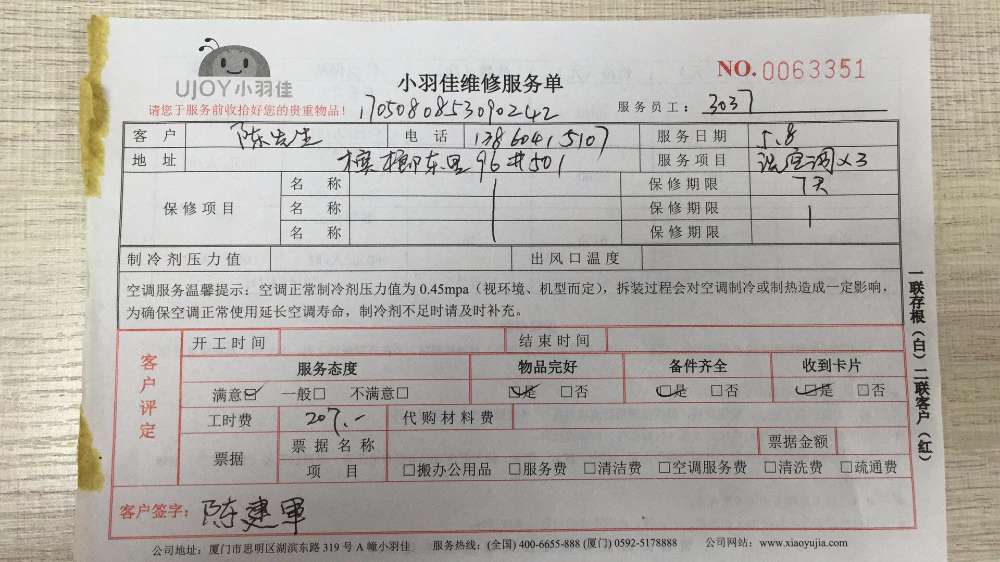 UJOY小羽佳
小羽佳维修服务单
NO.0063351
请您于服务前收拾好您的贵重物品!
17050808553090242
服务员工: 3037
客户 陈先生 电话 13860415107 服务日期 5.8
地址 槟榔东里96#501 服务项目 洗空调×3
保修项目 名称 保修期限 7天
名称 保修期限
名称 保修期限
制冷剂压力值 出风口温度
空调服务温馨提示:空调正常制冷剂压力值为 0.45mpa(视环境、机型而定),拆装过程会对空调制冷或制热造成一定影响,
为确保空调正常使用延长空调寿命,制冷剂不足时请及时补充。
客户评定
开工时间 结束时间
服务态度 物品完好 备件齐全 收到卡片
满意☑ 一般□ 不满意□ ☑是 □否 ☑是 □否 ☑是 □否
工时费 207.- 代购材料费
票据 票据名称 票据金额
项目 □搬办公用品 □服务费 □清洁费 □空调服务费 □清洗费 □疏通费
客户签字: 陈建军
一联存根(白)二联客户(红)
公司地址:厦门市思明区湖滨东路 319 号 A 幢小羽佳 服务热线:(全国) 400-6655-888 (厦门) 0592-5178888 公司网站:www.xiaoyujia.com